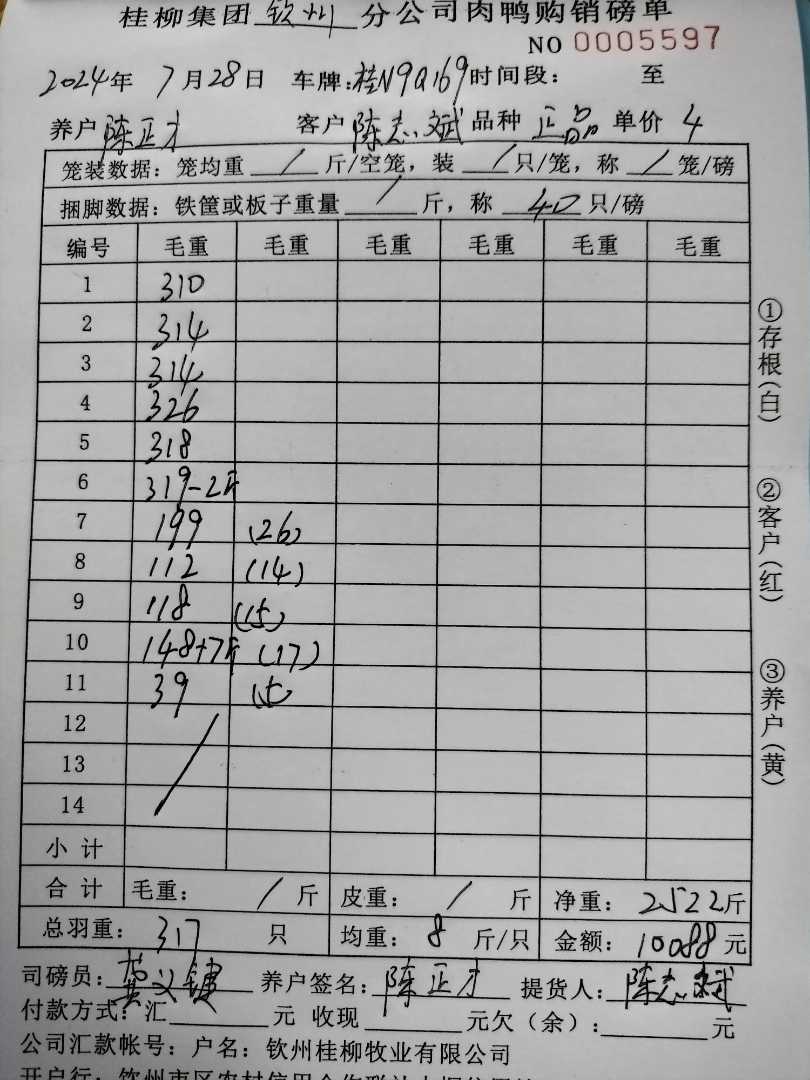 桂柳集团 钦州 分公司肉鸭购销磅单
NO 0005597
2024年 7月28日 车牌:桂N9Q169 时间段: 至
养户 陈正才 客户 陈志斌 品种 正品 单价 4
笼装数据: 笼均重 / 斤/空笼, 装 / 只/笼, 称 / 笼/磅
捆脚数据: 铁筐或板子重量 / 斤, 称 40 只/磅
编号 毛重 毛重 毛重 毛重 毛重 毛重
1 310
2 314
3 314
4 326
5 318
6 319-2斤
7 199 (26)
8 112 (14)
9 118 (15)
10 148+7斤 (17)
11 39 (5)
12
13
14
小计
合计 毛重: / 斤 皮重: / 斤 净重: 2522斤
总羽重: 317 只 均重: 8 斤/只 金额: 10088元
司磅员: 义键 养户签名: 陈正才 提货人: 陈志斌
付款方式: 汇 元 收现 元欠(余): 元
公司汇款帐号: 户名: 钦州桂柳牧业有限公司
开户行:
①存根(白)
②客户(红)
③养户(黄)